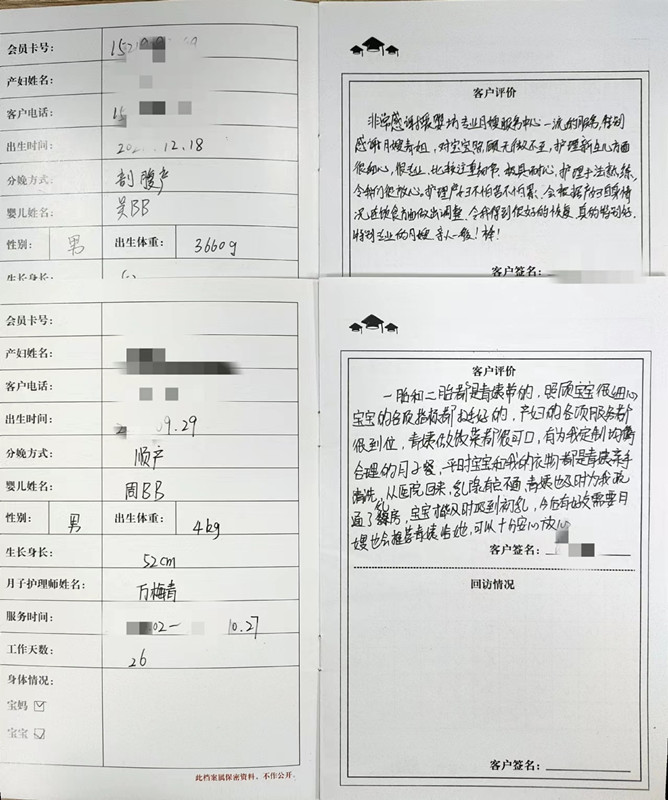 会员卡号：
产妇姓名：
客户电话：
出生时间： 12.18
分娩方式： 剖腹产
婴儿姓名： 吴BB
性别： 男 出生体重： 3660g
生长身长：
客户评价
非常感谢 婴坊专业月嫂服务中心一流的服务，特别
感谢月嫂青姐，对宝宝照顾无微不至，护理新生儿方面
很细心，很专业，比较注重细节，极具耐心，护理手法熟练，
令我们很放心，护理产妇不怕苦不怕累，会根据产妇身体情
况在饮食方面做出调整，令我得到很好的恢复，真的特别好，
特别专业的月嫂，亲人一般！棒！
客户签名：
会员卡号：
产妇姓名：
客户电话：
出生时间： 09.29
分娩方式： 顺产
婴儿姓名： 周BB
性别： 男 出生体重： 4kg
生长身长： 52cm
月子护理师姓名： 万梅青
服务时间： 02— 10.27
工作天数： 26
身体情况：
宝妈
宝宝
此档案属保密资料，不作公开.
客户评价
一胎和二胎都是青姨带的，照顾宝宝很细心
宝宝的各项指标都 好的，产妇的各项服务都
很到位，青姨做饭菜都很可口，有为我定制均衡
合理的月子餐，平时宝宝和我的衣物都是青姨亲手
清洗，从医院回来，乳腺有点不通，青姨也及时为我疏
通了乳房，宝宝才能及时吸到初乳，今后有好友需要月
嫂也会推荐青姨给她，可以十分安心放心
客户签名：
回访情况
客户签名：